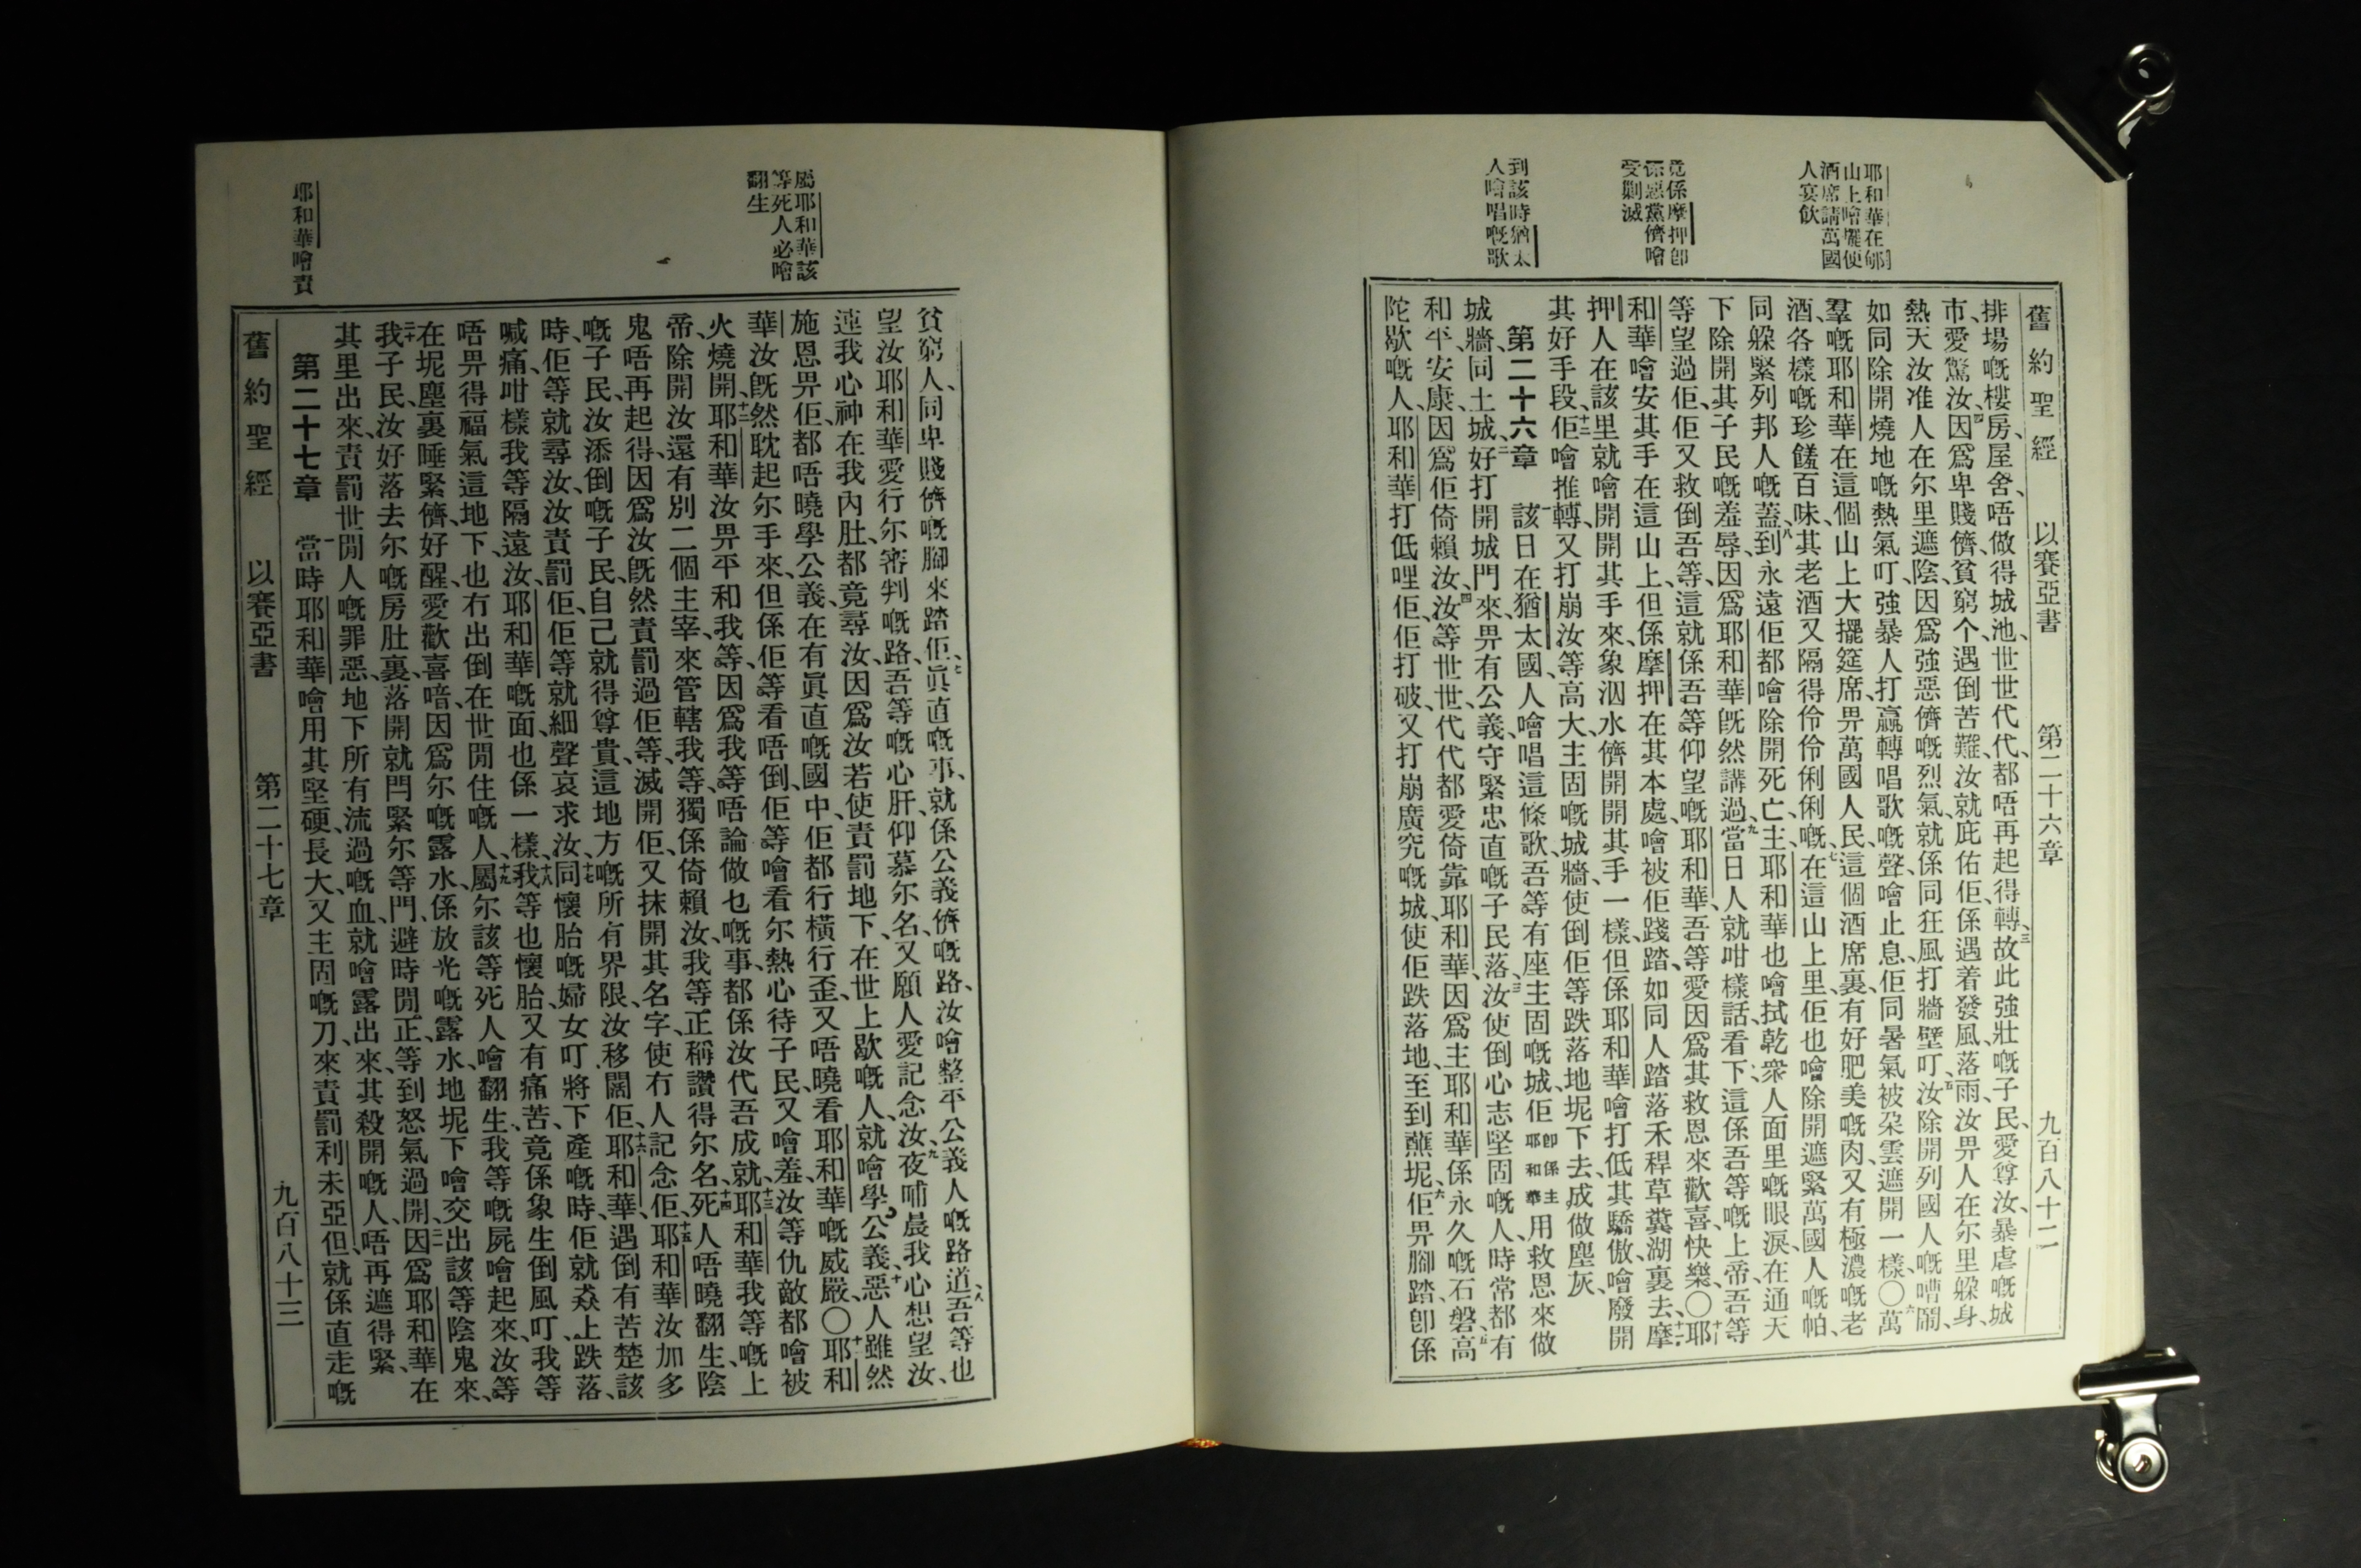 舊約聖經 以賽亞書 第二十六章 九百八十二
耶和華在郇
山上噲擺便
酒席請萬國
人宴飲
竟係摩押卽
係惡黨儕噲
受剿滅
到該時猶太
人噲唱嘅歌
排塲嘅樓房、屋舍、唔做得城池、世世代代、都唔再起得轉、三故此強壯嘅子民、愛尊汝、暴虐嘅城
市、愛驚汝、四因爲卑賤儕、貧窮个、遇倒苦難、汝就庇佑佢、係遇着發風落雨、汝畀人在尓里躱身、
熱天汝准人在尓里遮陰、因爲強惡儕嘅烈氣、就係同狂風打牆壁叮、五汝除開列國人嘅嘈鬧、
如同除開燒地嘅熱氣叮、強暴人打贏轉唱歌嘅聲、噲止息、佢同暑氣被朶雲遮開一樣、〇六萬
羣嘅耶和華、在這個山上大擺筵席、畀萬國人民、這個酒席裏、有好肥美嘅肉、又有極濃嘅老
酒、各樣嘅珍饈百味、其老酒又隔得伶伶俐俐嘅、七在這山上里、佢也噲除開遮緊萬國人嘅帕、
同躱緊列邦人嘅蓋、八到永遠佢都噲除開死亡、主耶和華也噲拭乾衆人面里嘅眼淚、在通天
下除開其子民嘅羞辱、因爲耶和華旣然講過、九當日人就咁樣話、看下、這係吾等嘅上帝、吾等
等望過佢、佢又救倒吾等、這就係吾等仰望嘅耶和華、吾等愛因爲其救恩來歡喜、快樂、〇十耶
和華噲安其手在這山上、但係摩押在其本處、噲被佢踐踏、如同人踏落禾稈草糞湖裏去、十一摩
押人在該里就噲開開其手來、象泅水儕開開其手一樣、但係耶和華噲打低其驕傲、噲廢開
其好手段、十二佢噲推轉、又打崩汝等高大、主固嘅城牆、使倒佢等跌落地坭下去、成做塵灰、
第二十六章 一該日在猶太國、人噲唱這條歌、吾等有座主固嘅城、佢卽係主耶和華用救恩來做
城牆、同土城、二好打開城門來、畀有公義、守緊忠直嘅子民落、三汝使倒心志堅固嘅人時常都有
和平、安康、因爲佢倚賴汝、四汝等世世代代都愛倚靠耶和華、因爲主耶和華係永久嘅石磐、五高
陀歇嘅人、耶和華打低哩佢、佢打破、又打崩廣究嘅城、使佢跌落地、至到蘸坭、六佢畀腳踏、卽係
屬耶和華該
等死人必噲
翻生
耶和華噲責
貧窮人、同卑賤儕嘅腳來踏佢、七眞直嘅事、就係公義儕嘅路、汝噲整平公義人嘅路道、八吾等也
望汝耶和華愛行尓審判嘅路、吾等嘅心肝、仰慕尓名、又願人愛記念汝、九夜哺晨我心想望汝、
連我心神在我內肚、都竟尋汝、因爲汝若使責罰地下、在世上歇嘅人、就噲學公義、十惡人雖然
施恩畀佢、都唔曉學公義、在有眞直嘅國中、佢都行橫行歪、又唔曉看耶和華嘅威嚴、〇十一耶和
華汝旣然耽起尓手來、但係佢等看唔倒、佢等噲看尓熱心待子民、又噲羞、汝等仇敵都噲被
火燒開、十二耶和華汝畀平和我等、因爲我等唔論做乜嘅事、都係汝代吾成就、十三耶和華我等嘅上
帝、除開汝還有別二個主宰、來管轄我等、獨係倚賴汝、我等正稱讚得尓名、十四死人唔曉翻生、陰
鬼唔再起得、因爲汝旣然責罰過佢等、滅開佢、又抹開其名字、使冇人記念佢、十五耶和華汝加多
嘅子民、汝添倒嘅子民、自己就得尊貴、這地方嘅所有界限、汝移闊佢、十六耶和華、遇倒有苦楚該
時、佢等就尋汝、汝責罰佢、佢等就細聲哀求汝、十七同懷胎嘅婦女叮、將下產嘅時、佢就猋上跌落、
喊痛、咁樣我等隔遠汝、耶和華嘅面也係一樣、十八我等也懷胎、又有痛苦、竟係象生倒風叮、我等
唔畀得福氣這地下、也冇出倒在世閒住嘅人、十九屬尓該等死人噲翻生、我等嘅屍噲起來、汝等
在坭塵裏睡緊儕、好醒、愛歡喜喑、因爲尓嘅露水、係放光嘅露水、地坭下噲交出該等陰鬼來、
二十我子民、汝好落去尓嘅房肚裏、落開就閂緊尓等門、避時閒正、等到怒氣過開、二一因爲耶和華在
其里出來、責罰世閒人嘅罪惡、地下所有流過嘅血、就噲露出來、其殺開嘅人、唔再遮得緊、
第二十七章 一當時耶和華噲用其堅硬、長大、又主固嘅刀、來責罰利未亞但、就係直走嘅
舊約聖經 以賽亞書 第二十七章 九百八十三